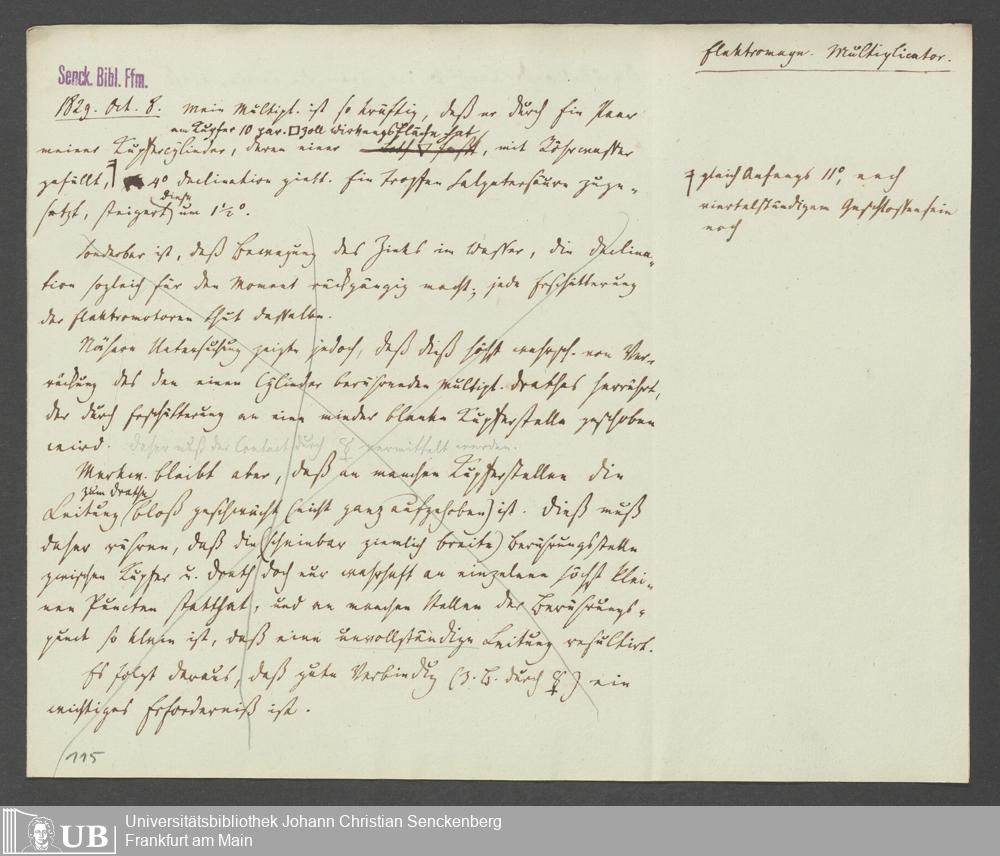 Elektromagn. Multiplicator.
Senck. Bibl. Ffm.
1829. Oct. 8. Mein Multipl. ist so kräftig, daß er durch Ein Paar
am Kupfer 10 par. □Zoll Wirkungsfläche hat
meiner Kupfercylinder, deren einer, mit Röhrwasser
gefüllt, 4° Declination giebt. Ein Tropfen Salpetersäure zuge-
diese
setzt, steigert um 1½°.
gleich Anfangs 11°, nach
viertelstündigem Geschlossensein
noch
Sonderbar ist, daß Bewegung des Zinks im Wasser, die Declina-
tion sogleich für den Moment rückgängig macht; jede Erschütterung
der Elektromotoren thut dasselbe.
Nähere Untersuchung zeigte jedoch, daß dieß höchst wahrsch. von Ver-
rückung des den einen Cylinder berührenden Multipl. Drathes herrührt,
der durch Erschütterung an eine minder blanke Kupferstelle geschoben
wird. Daher muß der Contact durch ☿ vermittelt werden.
Merkw. bleibt aber, daß an manchen Kupferstellen die
zum Drathe
Leitung bloß geschwächt (nicht ganz aufgehoben) ist. Dieß muß
daher rühren, daß die (scheinbar ziemlich breite) Berührungsstelle
zwischen Kupfer u. Drath doch nur wahrhaft an einzelnen höchst klei-
nen Puncten statthat, und an manchen Stellen der Berührungs-
punct so klein ist, daß eine unvollständige Leitung resultirt.
Es folgt daraus, daß gute Verbindg (z. B. durch ☿) ein
wichtiges Erforderniß ist.
115
UB
Universitätsbibliothek Johann Christian Senckenberg
Frankfurt am Main